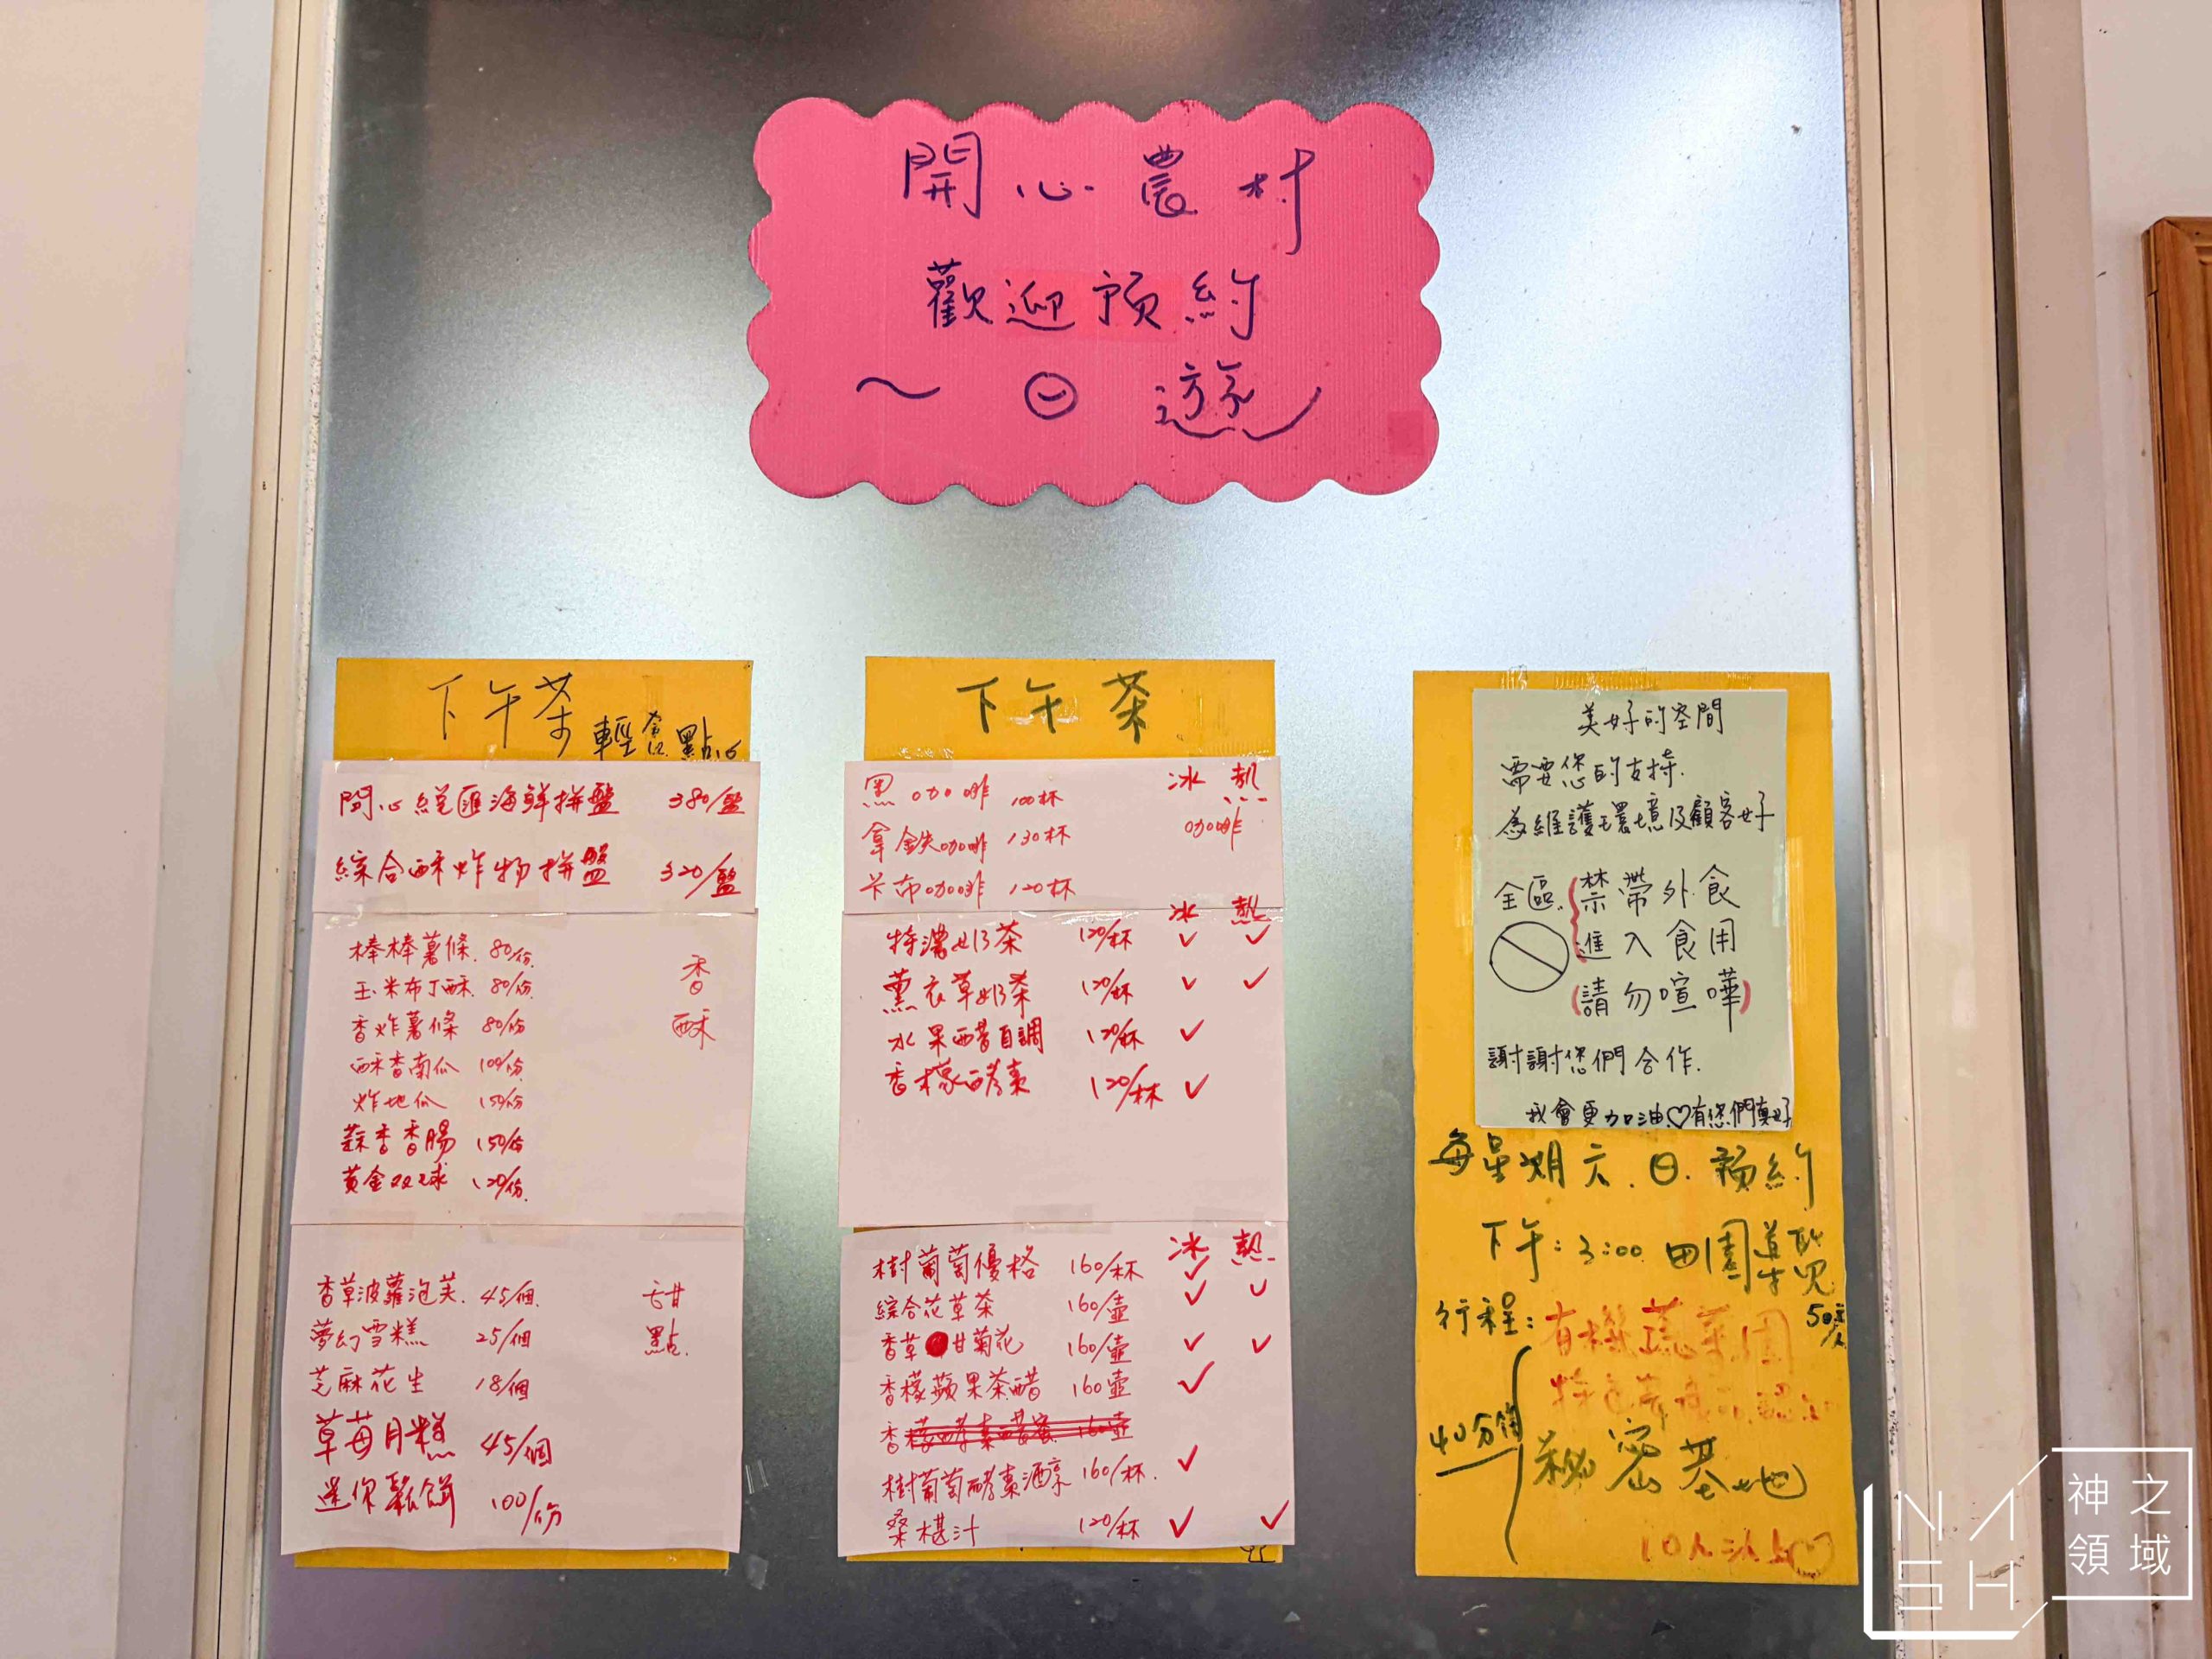 開心農村
歡迎預約
～日遊
下午茶
輕食點心
開心綜匯海鮮拼盤 380/盤
綜合酥炸物拼盤 320/盤
棒棒薯條 80/份
玉米布丁酥 80/份
香炸薯條 80/份
酥香南瓜 100/份
炸地瓜 150/份
蒜香香腸 150/份
黃金双球 120/份
香酥
香草波蘿泡芙 45/個
夢幻雪糕 25/個
芝麻花生 18/個
草莓月糕 45/個
迷你鬆餅 100/份
甜點
下午茶
冰 熱
黑咖啡 100杯
拿鉄咖啡 130杯
咖啡
卡布咖啡 120杯
冰 熱
特濃奶茶 120/杯 ✓ ✓
薰衣草奶茶 120/杯 ✓ ✓
水果醋自調 120/杯 ✓
香檬酵素 120/杯 ✓
冰 熱
樹葡萄優格 160/杯 ✓
綜合花草茶 160/壺 ✓ ✓
香草甘菊花 160/壺 ✓ ✓
香檬蘋果茶醋 160壺 ✓
樹葡萄酵素酒醇 160/杯. ✓
桑椹汁 120/杯 ✓ ✓
美好的空間
需要您的支持.
為維護環境及顧客好
全區.禁帶外食
進入食用
(請勿喧嘩)
謝謝您們合作.
我會更加油♡有您們真好
每星期六.日.預約
下午:3:00 田園導覽
50元/人
行程:有機蔬菜園
40分鐘
秘密基地
10人以上♡
NASH
神之領域